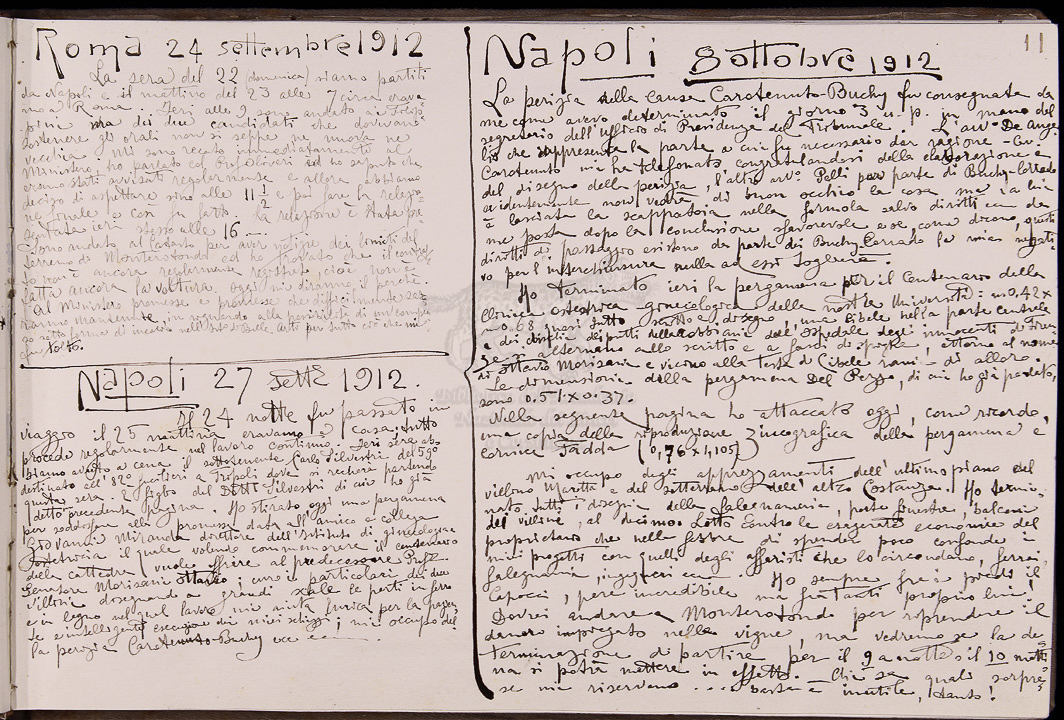 11
Roma 24 settembre 1912
La sera del 22 (domenica) siamo partiti
da Napoli e il mattino del 23 alle 7 circa erava-
mo a Roma. Ieri alle 2 sono andato ai
ma dei due candidati che dovevano
sostenere gli orali non seppe
vecchia. Mi sono recato immediatamente al
Ministero, ho parlato col Prof. Oliveri ed ho saputo che
erano stati avvisati regolarmente e allora abbiamo
deciso di aspettare sino alle 11 1/2 e poi fare la relazio-
ne finale e così fu fatto. La relazione è stata pre-
sentata ieri stesso alle 16
Sono andato al Catasto per aver notizie dei limiti del
terreno di Monterotondo ed ho trovato che il
non è ancora regolarmente registrato, cioè non è
fatta ancora la voltura. Oggi mi diranno il perchè.
Al ministero promesse e promesse che difficilmente sa-
ranno mantenute, in riguardo alla possibilità di un
per tutto ciò che mi
Napoli 27 sett.e 1912.
Il 24 notte fu passato in
viaggio il 25 mattina eravamo a casa, tutto
procede regolarmente nel lavoro continuo. Ieri sera ab-
biamo avuto a cena il sottotenente Carlo Silvestri del 59º
destinato all' 82º fucilieri a Tripoli dove si recherà partendo
questa sera. È figlio del Dott. Silvestri di cui ho già
detto precedente pagina. Ho stirato oggi una pergamena
per soddisfare alla promessa data all'amico e collega
Giovanni Miranda direttore dell'Istituto di ginecologia e
ostetricia il quale volendo commemorare il centenario
della cattedra vuole offrire al predecessore Prof.
Senatore Morisani Ottavio; curo i particolari dei due
villini disegnando a grandi scale le parti in ferro
e in legno nel qual lavoro mi aiuta Enrica per la
te e intelligente esecuzione dei miei schizzi; mi occupo del
la perizia Carotenuto-Buchy ecc ecc
Napoli 8 ottobre 1912
La perizia nella causa Carotenuto-Buchy fu consegnata da
me come avevo determinato il giorno 3 u. p. in mano del
segretario dell'ufficio di Presidenza del Tribunale. L'avv.o De Ange
lis che rappresenta la parte a cui fu necessario dar ragione - Cav.
Carotenuto mi ha telefonato congratulandosi della elaborazione e
del disegno della perizia, l'altro avv.o Pelli per parte di Buchy-Corrado
evidentemente non vedrà di buon occhio la cosa, ma v'è lui
è lasciata la scappatoia nella formola salvo diritti ecc da
me posta dopo la conclusione sfavorevole e se, come dicono, questi
diritti di passaggio esistono da parte dei Buchy, Corrado la mia negati-
vo per l'interchiusura nulla ad essi toglierà.
Ho terminato ieri la pergamena per il Centenario della
Clinica ostetrica-ginecologica della nostra Università: m 0,42 x
m 0.68 quasi tutto scritto e disegno, una Cibele nella parte centrale
e dei puttini della robbiani dell'Ospedale degli innocenti di Firen-
ze si alternano allo scritto e a fasci di spighe, attorno al nome
di Ottavio Morisani e vicino alla testa di Cibele rami di alloro.
Le dimensioni della pergamena Del Pezzo, di cui ho già parlato,
sono 0.51 x 0.37.
Nella seguente pagina ho attaccato oggi, come ricordo,
una copia della riproduzione zincografica della pergamena e
cornice Tadda (0,76 x 1,105)
Mi occupo degli apprezzamenti dell'ultimo piano del
villino Maritta e del sotterraneo dell'altro Costanza. Ho termi-
nato tutti i disegni della falegnameria, porte finestre, balconi
del villino, al decimo. Lotto contro le esagerate economie del
proprietario che nella febbre di spender poco confonde i
miei progetti con quelli degli affaristi che lo circondano, ferrai,
falegnami, ingegneri ecc. Ho sempre fra i piedi il
Capocci, pare incredibile ma fintanti proprio lui!
Dovrei andare a Monterotondo per riprendere il
danaro impiegato nelle vigne, ma vedremo se la de
terminazione di partire per il 9 a notte o il 10 matti
na si potrà mettere in effetto. Chi sa quali sorpre
se mi riservano ... basta è inutile, tanto!